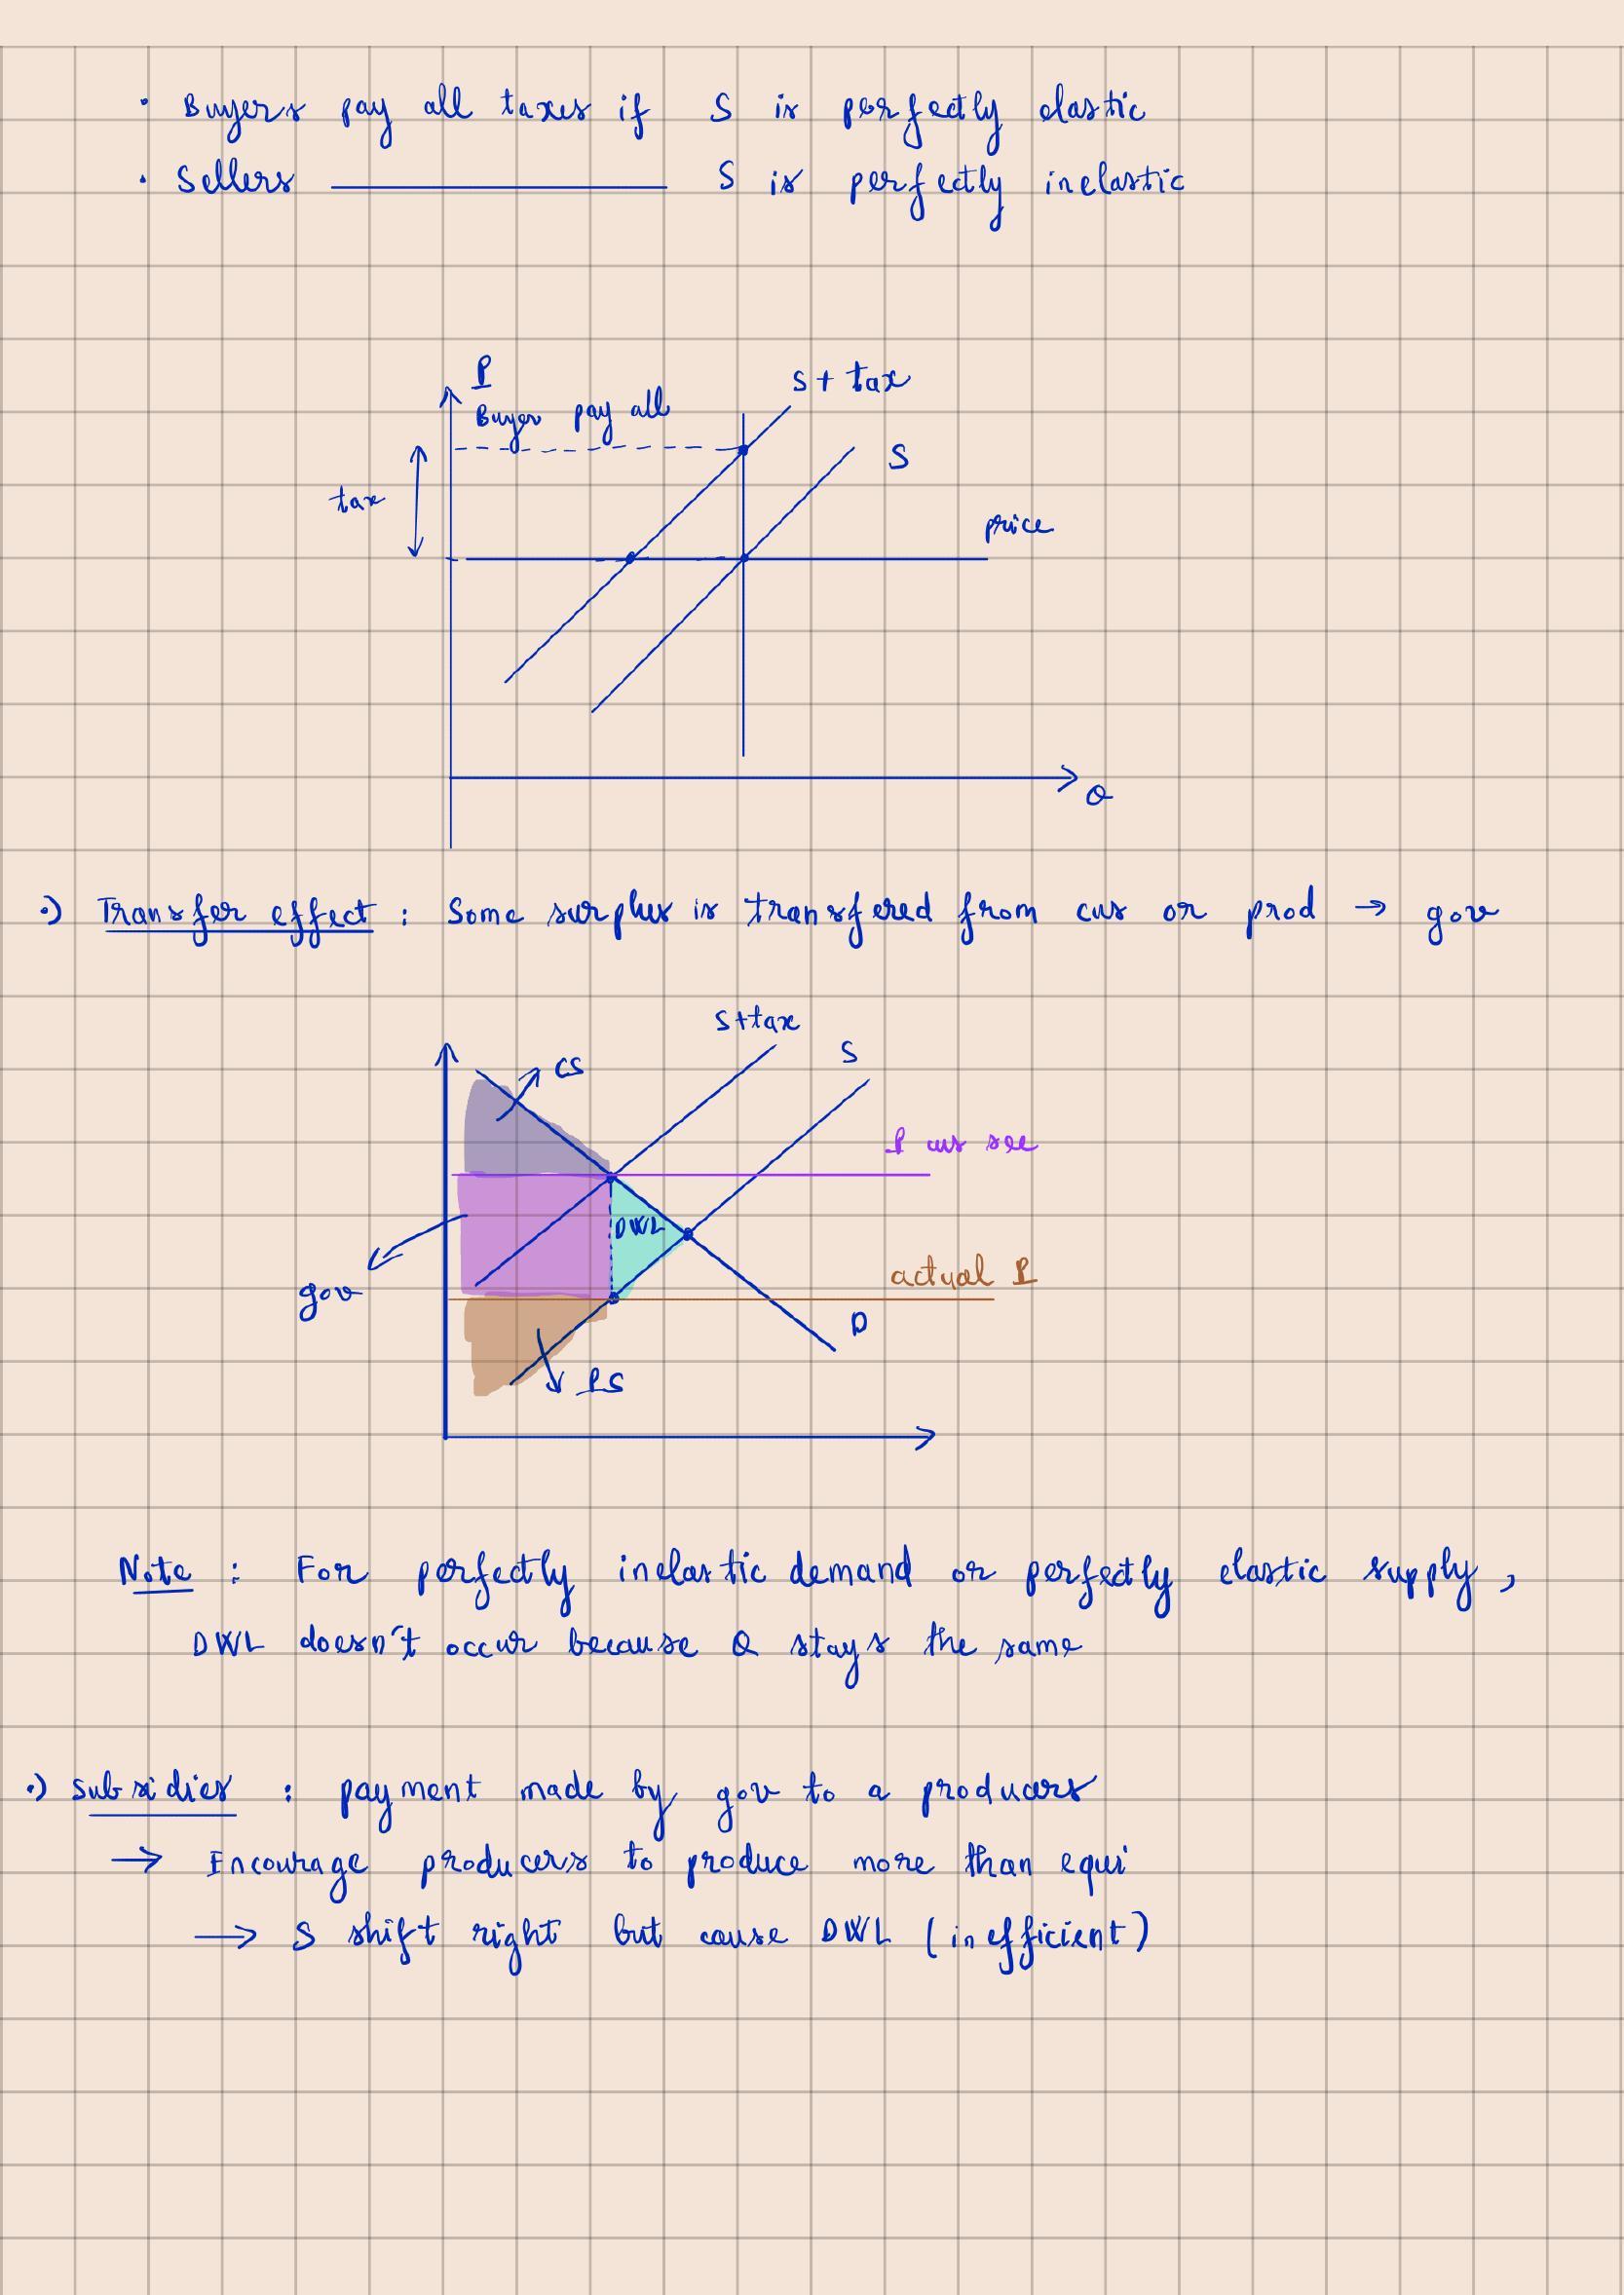 · Buyers pay all taxes if S is perfectly elastic
· Sellers ———— S is perfectly inelastic
P
S + tax
Buyer pay all
S
tax
price
Q
·) Transfer effect : Some surplus is transfered from cus or prod → gov
S+tax
S
CS
P cus see
DWL
gov
actual P
D
PS
Note : For perfectly inelastic demand or perfectly elastic supply ,
DWL doesn't occur because Q stays the same
·) Subsidies : payment made by gov to a producers
→ Encourage producers to produce more than equi
→ S shift right but cause DWL (inefficient)